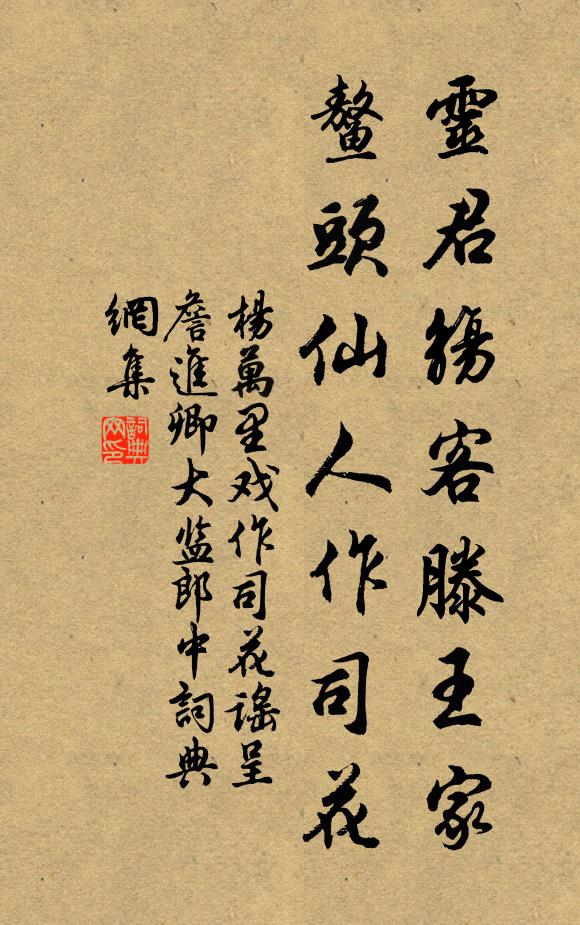 靈君觴客滕王家
鰲頭仙人作司花
楊萬里戏作司花謠呈
詹進卿大监郎中詞典
網集
詞典网印